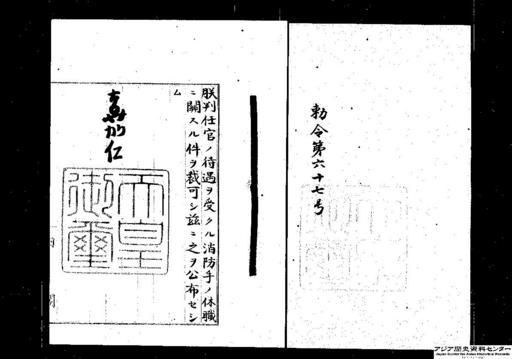 勅令第六十七号
朕判任官ノ待遇ヲ受クル消防手ノ休職
ニ關スル件ヲ裁可シ茲ニ之ヲ公布セシ
ム
嘉仁
天皇
御璽
アジア歴史資料センター
Japan Center for Asian Historical Records